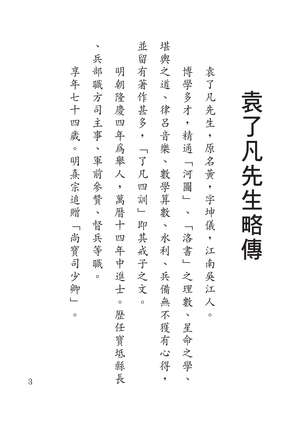 袁了凡先生略傳
袁了凡先生，原名黃，字坤儀，江南吳江人。
博學多才，精通「河圖」、「洛書」之理數、星命之學、
堪輿之道、律呂音樂、數學算數、水利、兵備無不獲有心得，
並留有著作甚多，「了凡四訓」即其戒子之文。
明朝隆慶四年為舉人，萬曆十四年中進士。歷任寶坻縣長
、兵部職方司主事、軍前參贊、督兵等職。
享年七十四歲。明熹宗追贈「尚寶司少卿」。
3